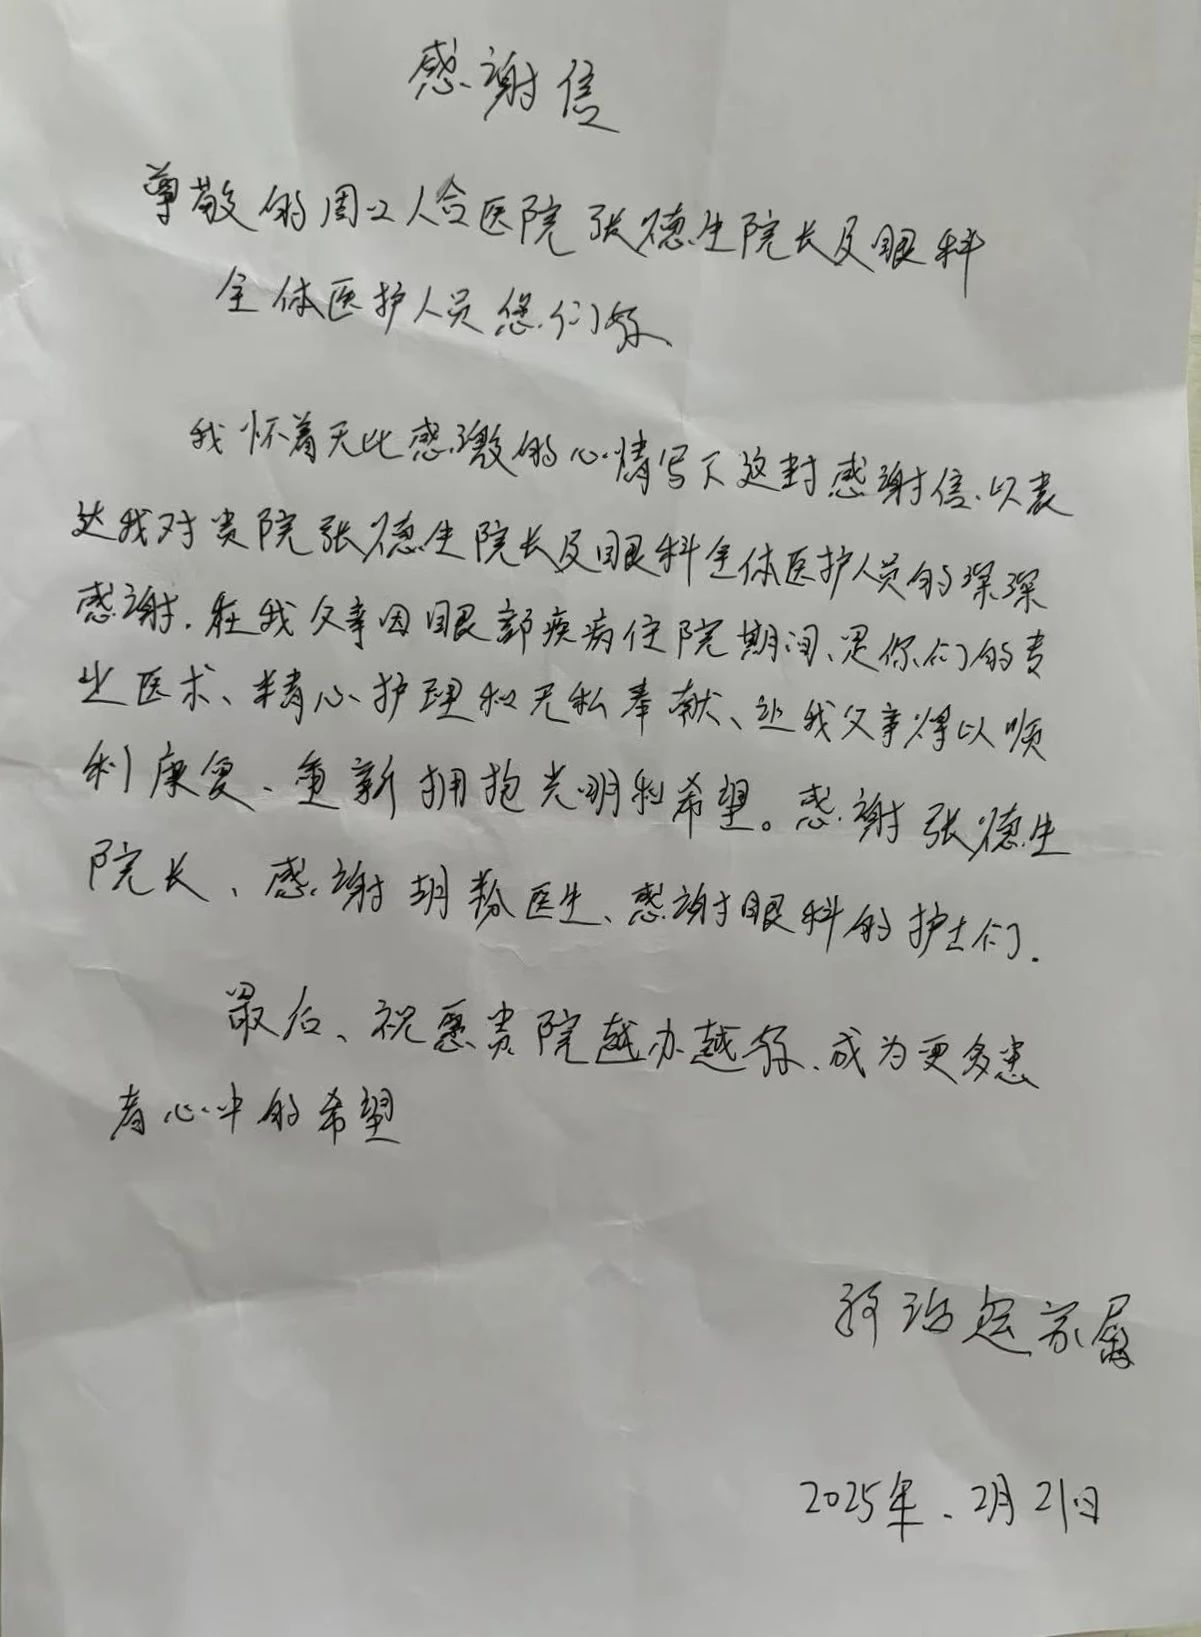 感谢信
尊敬的周口人合医院张德生院长及眼科
全体医护人员您们好
我怀着无比感激的心情写下这封感谢信、以表
达我对贵院张德生院长及眼科全体医护人员的深深
感谢. 在我父亲因眼部疾病住院期间、是你们的专
业医术、精心护理和无私奉献、让我父亲得以顺
利康复、重新拥抱光明和希望。感谢张德生
院长、感谢胡粉医生、感谢眼科的护士们.
最后、祝愿贵院越办越好、成为更多患
者心中的希望
家属
2025年、2月21日